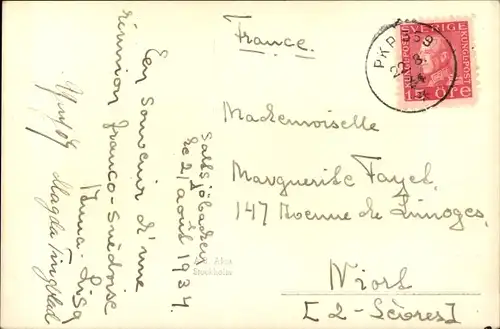 France.
SVERIGE
KUNGL.POST
15 ÖRE
PKP
22.8.
Mademoiselle
Marguerite Fayet.
147 Avenue de Limoges.
Niort
[2-Sèvres]
Saltsjöbaden
le 21 août 1934.
En souvenir d'une
réunion franco-suédoise
Anna-Lisa
Magda Tingblad
Stockholm